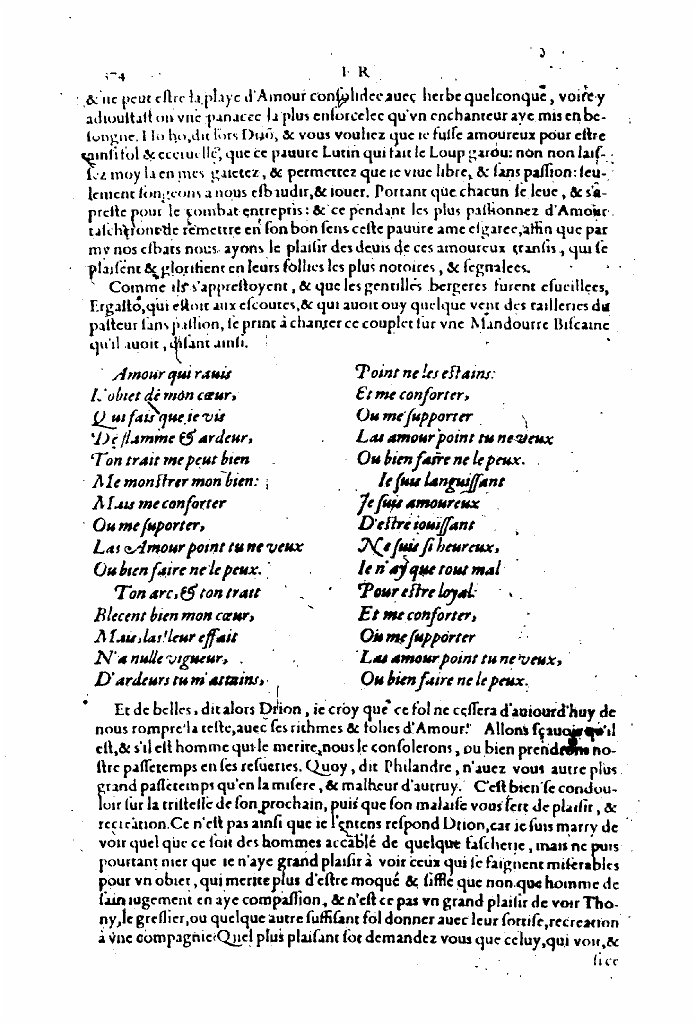 I R
& ne peut estre la playe d'Amour consolidee auec herbe quelconque, voire y
adioustast on vne panacee la plus enforcelee qu'vn enchanteur aye mis en be-
songne. Ho ho, dit lors & vous vouliez que ie fusse amoureux pour estre
ainsi fol & que ce pauure Lutin qui fait le Loup garou: non non lais-
sez moy la en mes gaietez, & permettez que ie viue libre, & sans passion: seu-
lement songeons a nous esbaudir, & iouer. Portant que chacun se leue, & s'a-
preste pour le combat entrepris: & ce pendant les plus passionnez d'Amour
tascheront de remettre en son bon sens ceste pauure ame esgaree, affin que par
my nos esbats nous ayons le plaisir des deuis de ces amoureux transis, qui se
plaisent & glorifient en leurs follies les plus notoires, & segnalees.
Comme ils s'apprestoyent, & que les gentilles bergeres furent esueillees,
Ergasto, qui estoit aux escoutes, & qui auoit ouy quelque vent des railleries du
pasteur sans passion, se print à chanter ce couplet sur vne Mandourre Biscaine
qu'il auoit, disant ainsi.
Amour qui rauis
L'obiet de mon cœur,
Qui fais que ie vis
De flamme & ardeur,
Ton trait me peut bien
Me monstrer mon bien:
Mais me conforter
Ou me suporter,
Las Amour point tu ne veux
Ou bien faire ne le peux.
Ton arc, & ton trait
Blecent bien mon cœur,
Mais, las! leur effait
N'a nulle vigueur,
D'ardeurs tu m'attains,
Point ne les estains:
Et me conforter,
Ou me supporter
Las amour point tu ne veux
Ou bien faire ne le peux.
Ie suis languissant
Ie suis amoureux
D'estre iouissant
Ne suis si heureux,
Ie n'ay que tout mal
Pour estre loyal:
Et me conforter,
Ou me supporter
Las amour point tu ne veux,
Ou bien faire ne le peux.
Et de belles, dit alors Drion, ie croy que ce fol ne cessera d'auiourd'huy de
nous rompre la teste, auec ses rithmes & folies d'Amour. Allons sçauoir qu'il
est, & s'il est homme qui le merite, nous le consolerons, ou bien prendrons no-
stre passetemps en ses resueries. Quoy, dit Philandre, n'auez vous autre plus
grand passetemps qu'en la misere, & malheur d'autruy. C'est bien se condou-
loir sur la tristesse de son prochain, puis que son malaise vous sert de plaisir, &
recreation. Ce n'est pas ainsi que ie l'entens respond Drion, car ie suis marry de
voir quel que ce soit des hommes accablé de quelque fascherie, mais ne puis
pourtant nier que ie n'aye grand plaisir à voir ceux qui se faignent miserables
pour vn obiet, qui merite plus d'estre moqué & sifflé que non que homme de
sain iugement en aye compassion, & n'est ce pas vn grand plaisir de voir Tho-
ny, le greslier, ou quelque autre suffisant fol donner auec leur sottise, recreation
à vne compagnie? Quel plus plaisant sot demandez vous que celuy, qui voir, &